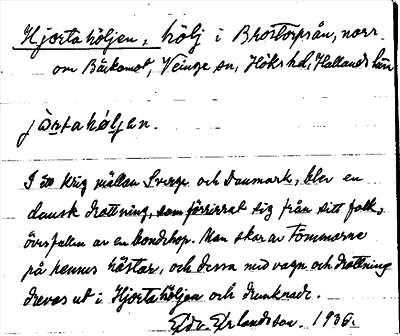 Hjortahöljen, hölj i Brostorpsån, norr
om Bäckomot, Veinge sn, Höks hd, Hallands län
jårtahøljen.
I ett krig mällan Sverge och Danmark, blev en
dansk drottning, som förirrat sig från sitt folk,
överfallen av en bondehop. Man skar av tömmarne
på hennes hästar, och dessa med vagn och drottning
drevos ut i Hjortahöljen och drunknade.
Edv. Erlandsson. 1936.